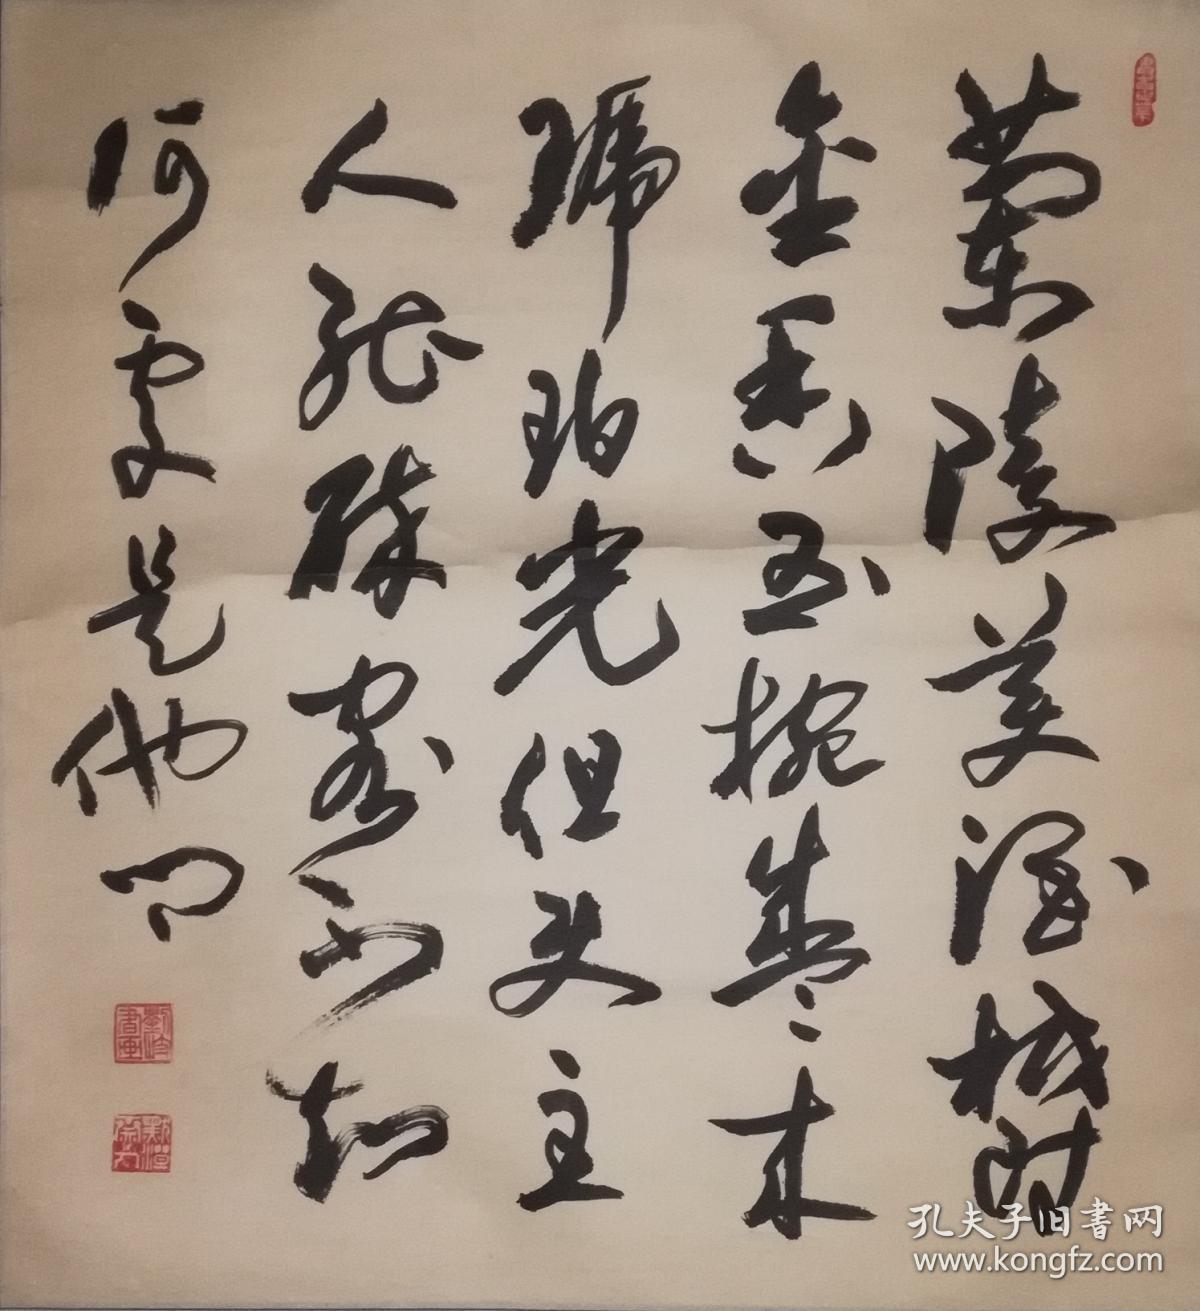 蘭陵美酒鬱
金香玉椀盛来
琥珀光但使主
人能醉客不知
何處是他鄉
孔夫子旧書网
www.kongfz.com